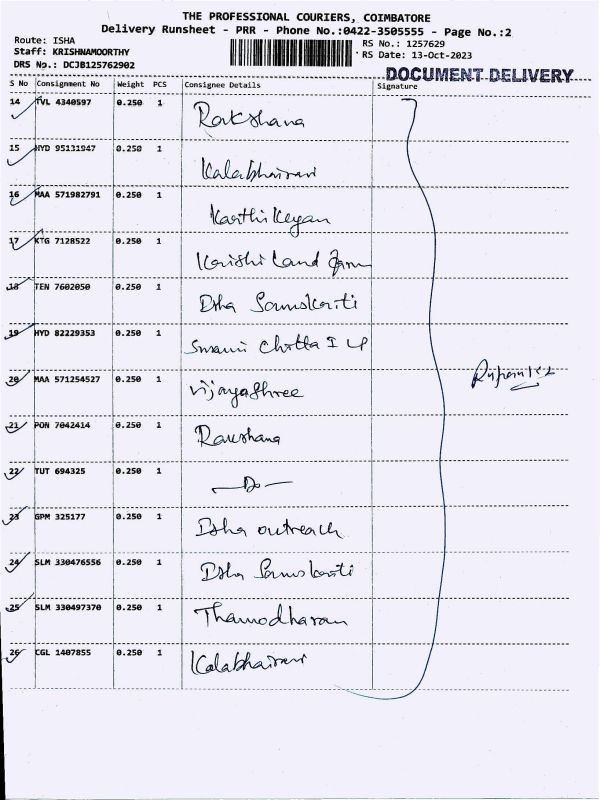 THE PROFESSIONAL COURIERS, COIMBATORE
Delivery Runsheet - PRR - Phone No.:0422-3505555 - Page No.:2
Route: ISHA
RS No.: 1257629
Staff: KRISHNAMOORTHY
RS Date: 13-Oct-2023
DRS No.: DCJB125762902
DOCUMENT DELIVERY
S No Consignment No Weight PCS Consignee Details Signature
14 TVL 4340597 0.250 1 Rakshana
15 HYD 95131947 0.250 1 Kalabhairavi
16 MAA 571982791 0.250 1 Karthikeyan
17 KTG 7128522 0.250 1 Krishi Land Farm
18 TEN 7602050 0.250 1 Isha Samskriti
19 HYD 82229353 0.250 1 Swami Chitta I LP
20 MAA 571254527 0.250 1 Vijayashree
21 PON 7042414 0.250 1 Rakshana
22 TUT 694325 0.250 1 —Do—
23 GPM 325177 0.250 1 Isha outreach
24 SLM 330476556 0.250 1 Isha Samskriti
25 SLM 330497370 0.250 1 Thamodharan
26 CGL 1407855 0.250 1 Kalabhairavi